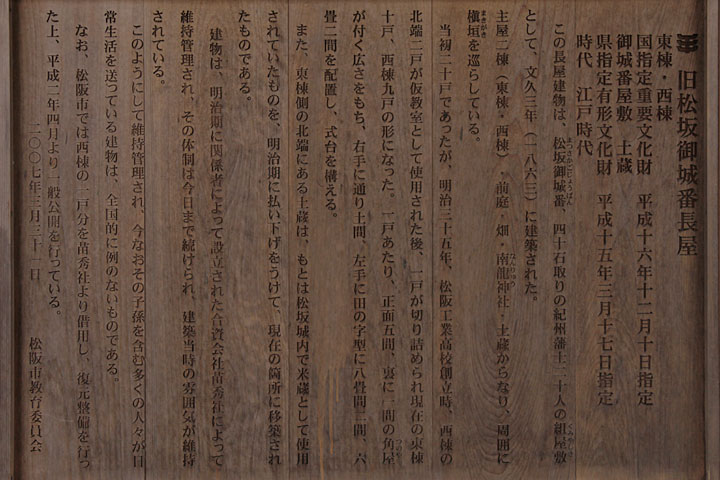 旧松坂御城番長屋
東棟・西棟
国指定重要文化財 平成十六年十二月十日指定
御城番屋敷 土蔵
県指定有形文化財 平成十五年三月十七日指定
時代 江戸時代
この長屋建物は、松坂御城番 四十石取りの紀州藩士二十人の組屋敷
として、文久三年(一八六三)に建築された。
主屋二棟(東棟・西棟)・前庭・畑・南龍神社・土蔵からなり、周囲に
槇垣を巡らしている。
当初二十戸であったが、明治三十五年、松阪工業高校創立時、西棟の
北端二戸が仮教室として使用された後、一戸が切り詰められ現在の東棟
十戸、西棟九戸の形になった。一戸あたり、正面五間、裏に一間の角屋
が付く広さをもち、右手に通り土間、左手に田の字型に八畳間二間、六
畳二間を配置し、式台を構える。
また、東棟側の北端にある土蔵は、もとは松坂城内で米蔵として使用
されていたものを、明治期に払い下げをうけて、現在の箇所に移築され
たものである。
建物は、明治期に関係者によって設立された合資会社苗秀社によって
維持管理され、その体制は今日まで続けられ、建築当時の雰囲気が維持
されている。
このようにして維持管理され、今なおその子孫を含む多くの人々が日
常生活を送っている建物は、全国的に例のないものである。
なお、松阪市では西棟の一戸分を苗秀社より借用し、復元整備を行っ
た上、平成二年四月より一般公開を行っている。
二〇〇七年三月三十一日 松阪市教育委員会